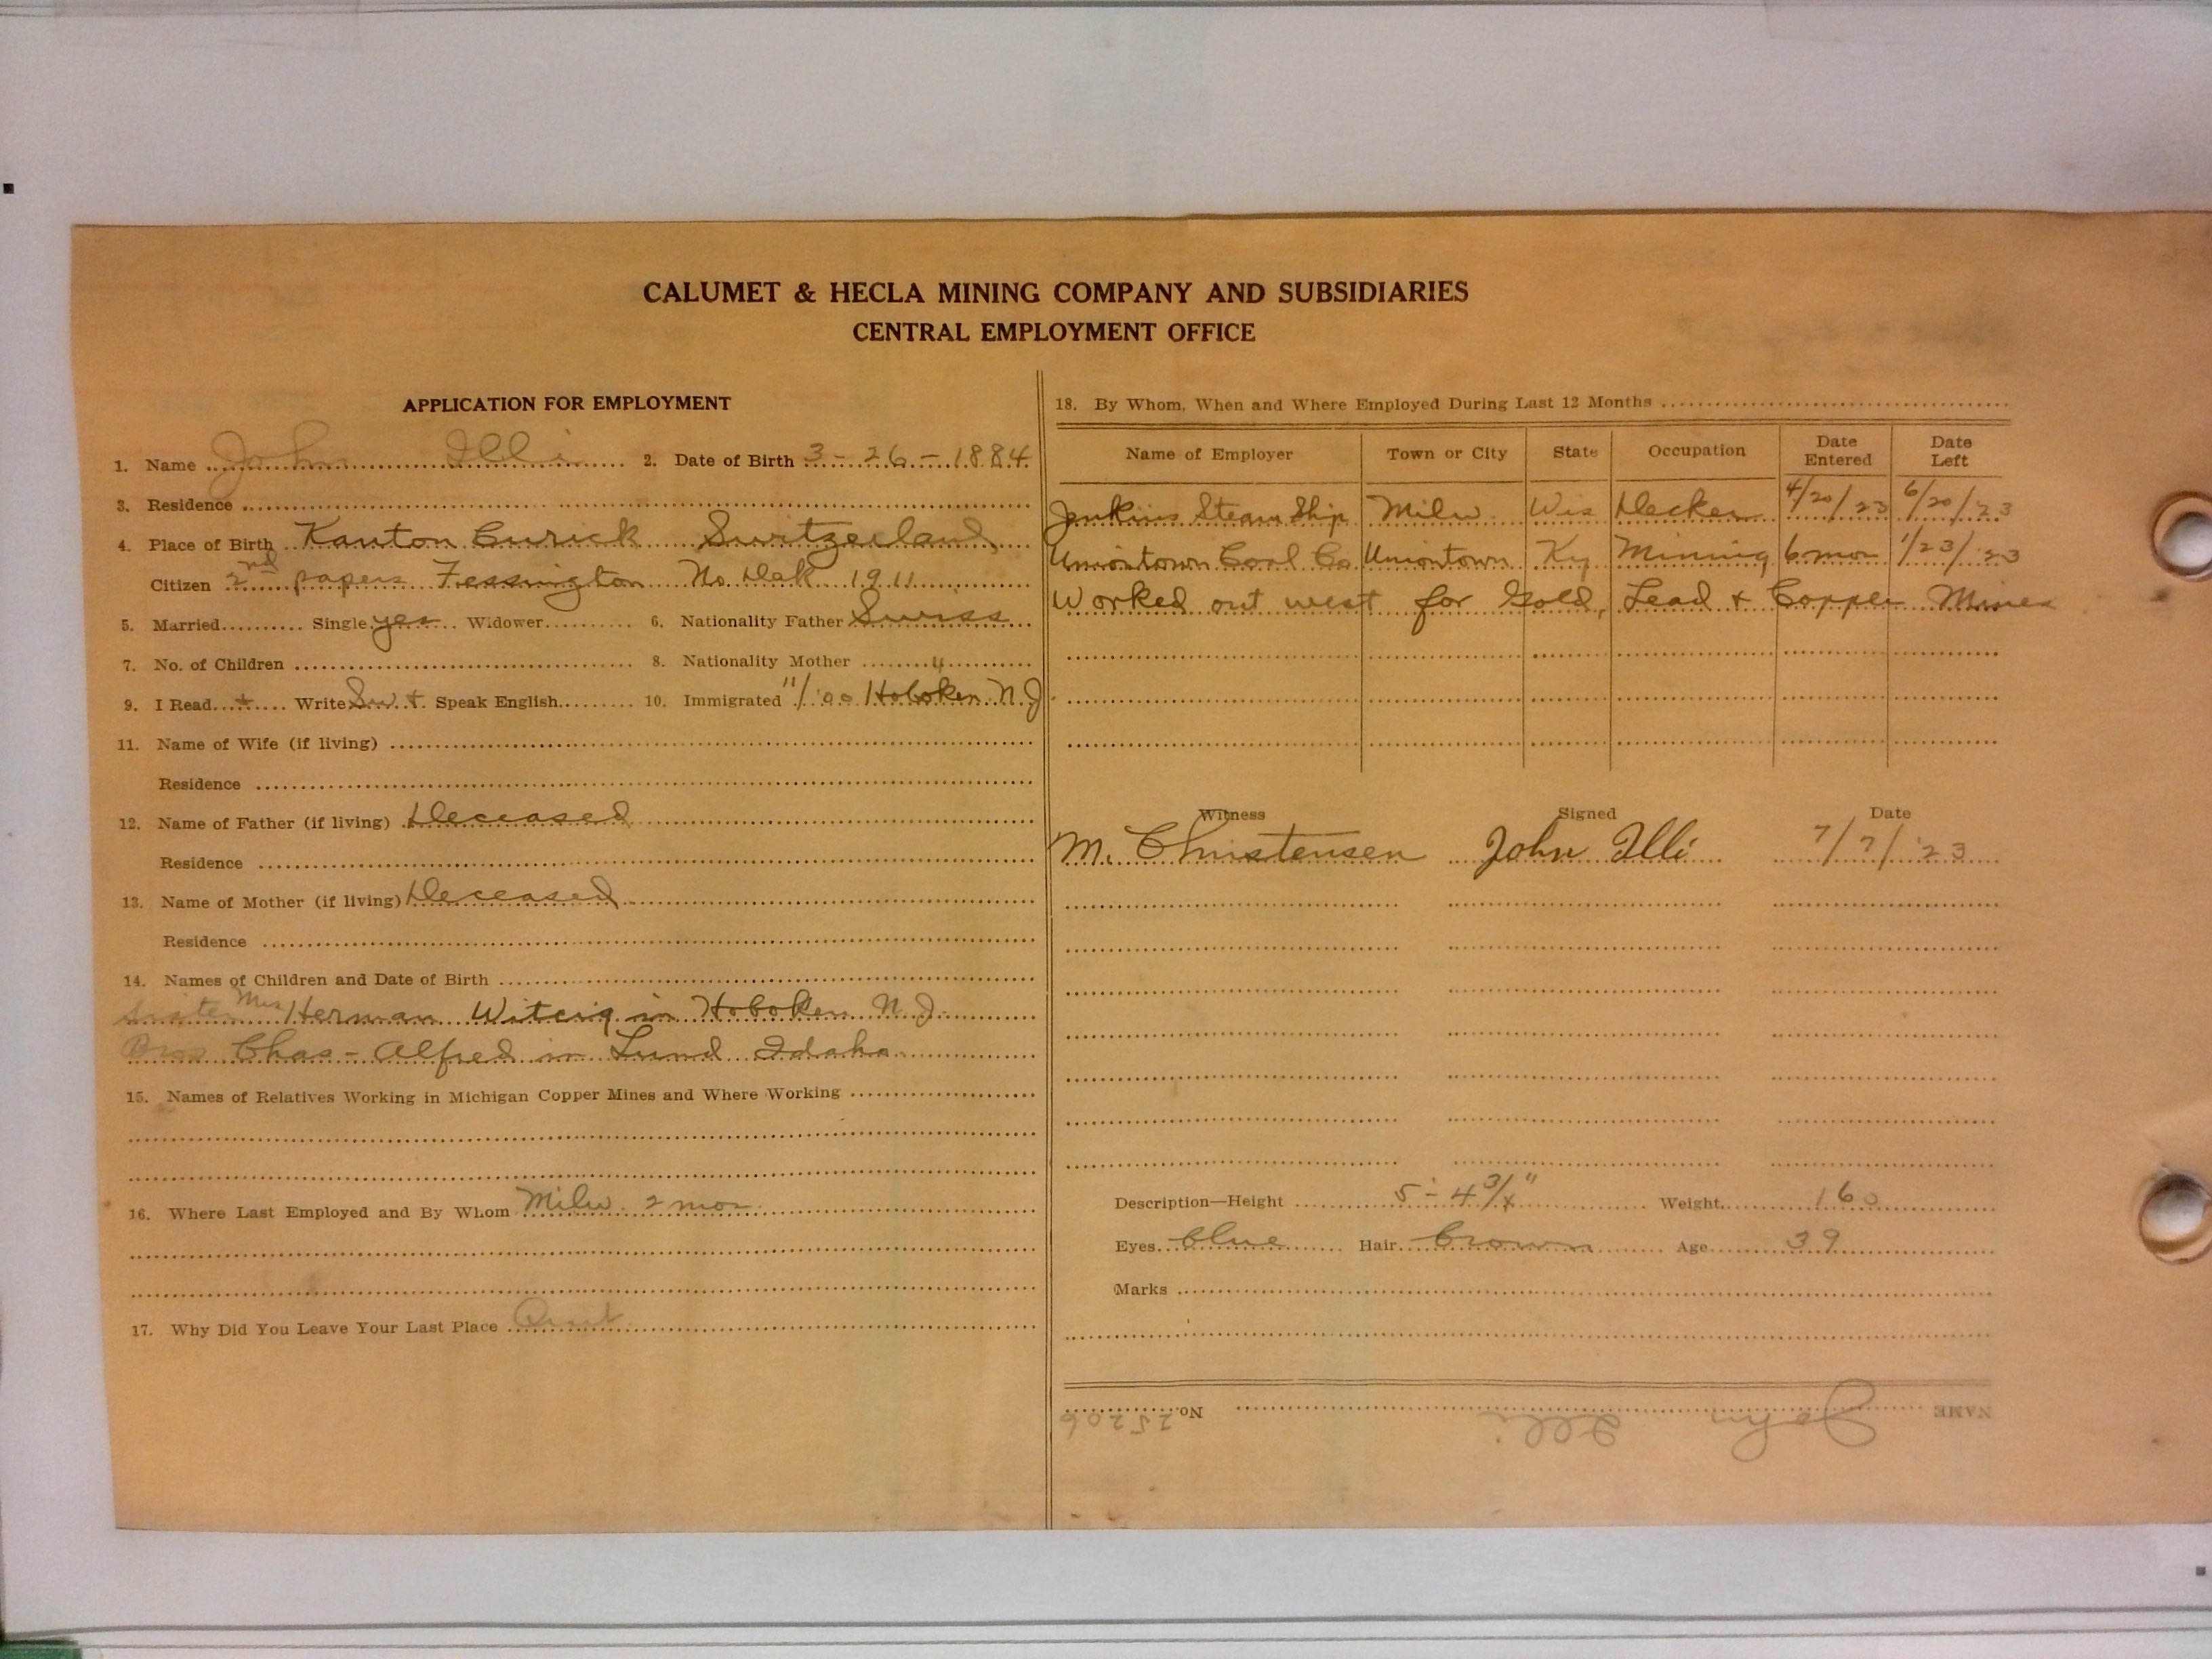 CALUMET & HECLA MINING COMPANY AND SUBSIDIARIES
CENTRAL EMPLOYMENT OFFICE
APPLICATION FOR EMPLOYMENT
1. Name John Illi 2. Date of Birth 3-26-1884
3. Residence
4. Place of Birth Kanton Curick Switzerland
Citizen 2nd papers Fessington No. Dak 1911
5. Married Single yes Widower 6. Nationality Father Swiss
7. No. of Children 8. Nationality Mother "
9. I Read + Write Sw. + Speak English 10. Immigrated 11/'00 Hoboken N.J
11. Name of Wife (if living)
Residence
12. Name of Father (if living) Deceased
Residence
13. Name of Mother (if living) Deceased
Residence
14. Names of Children and Date of Birth
Sister Mrs Herman Witcig in Hoboken N.J.
Bros Chas - Alfred in Lund Idaho
15. Names of Relatives Working in Michigan Copper Mines and Where Working
16. Where Last Employed and By Whom Milw. 2 mos
17. Why Did You Leave Your Last Place Quit
18. By Whom, When and Where Employed During Last 12 Months
Name of Employer Town or City State Occupation Date Entered Date Left
Jenkins Steam Ship Milw. Wis Decker 4/20/23 6/20/'23
Uniontown Coal Co Uniontown Ky Minning 6 mos 1/23/'23
Worked out west for Gold, Lead + Copper Mines
Witness Signed Date
M. Christensen John Illi 7/7/'23
Description—Height 5'-4 3/4" Weight 160
Eyes blue Hair Brown Age 39
Marks
NAME John Illi No. 25206